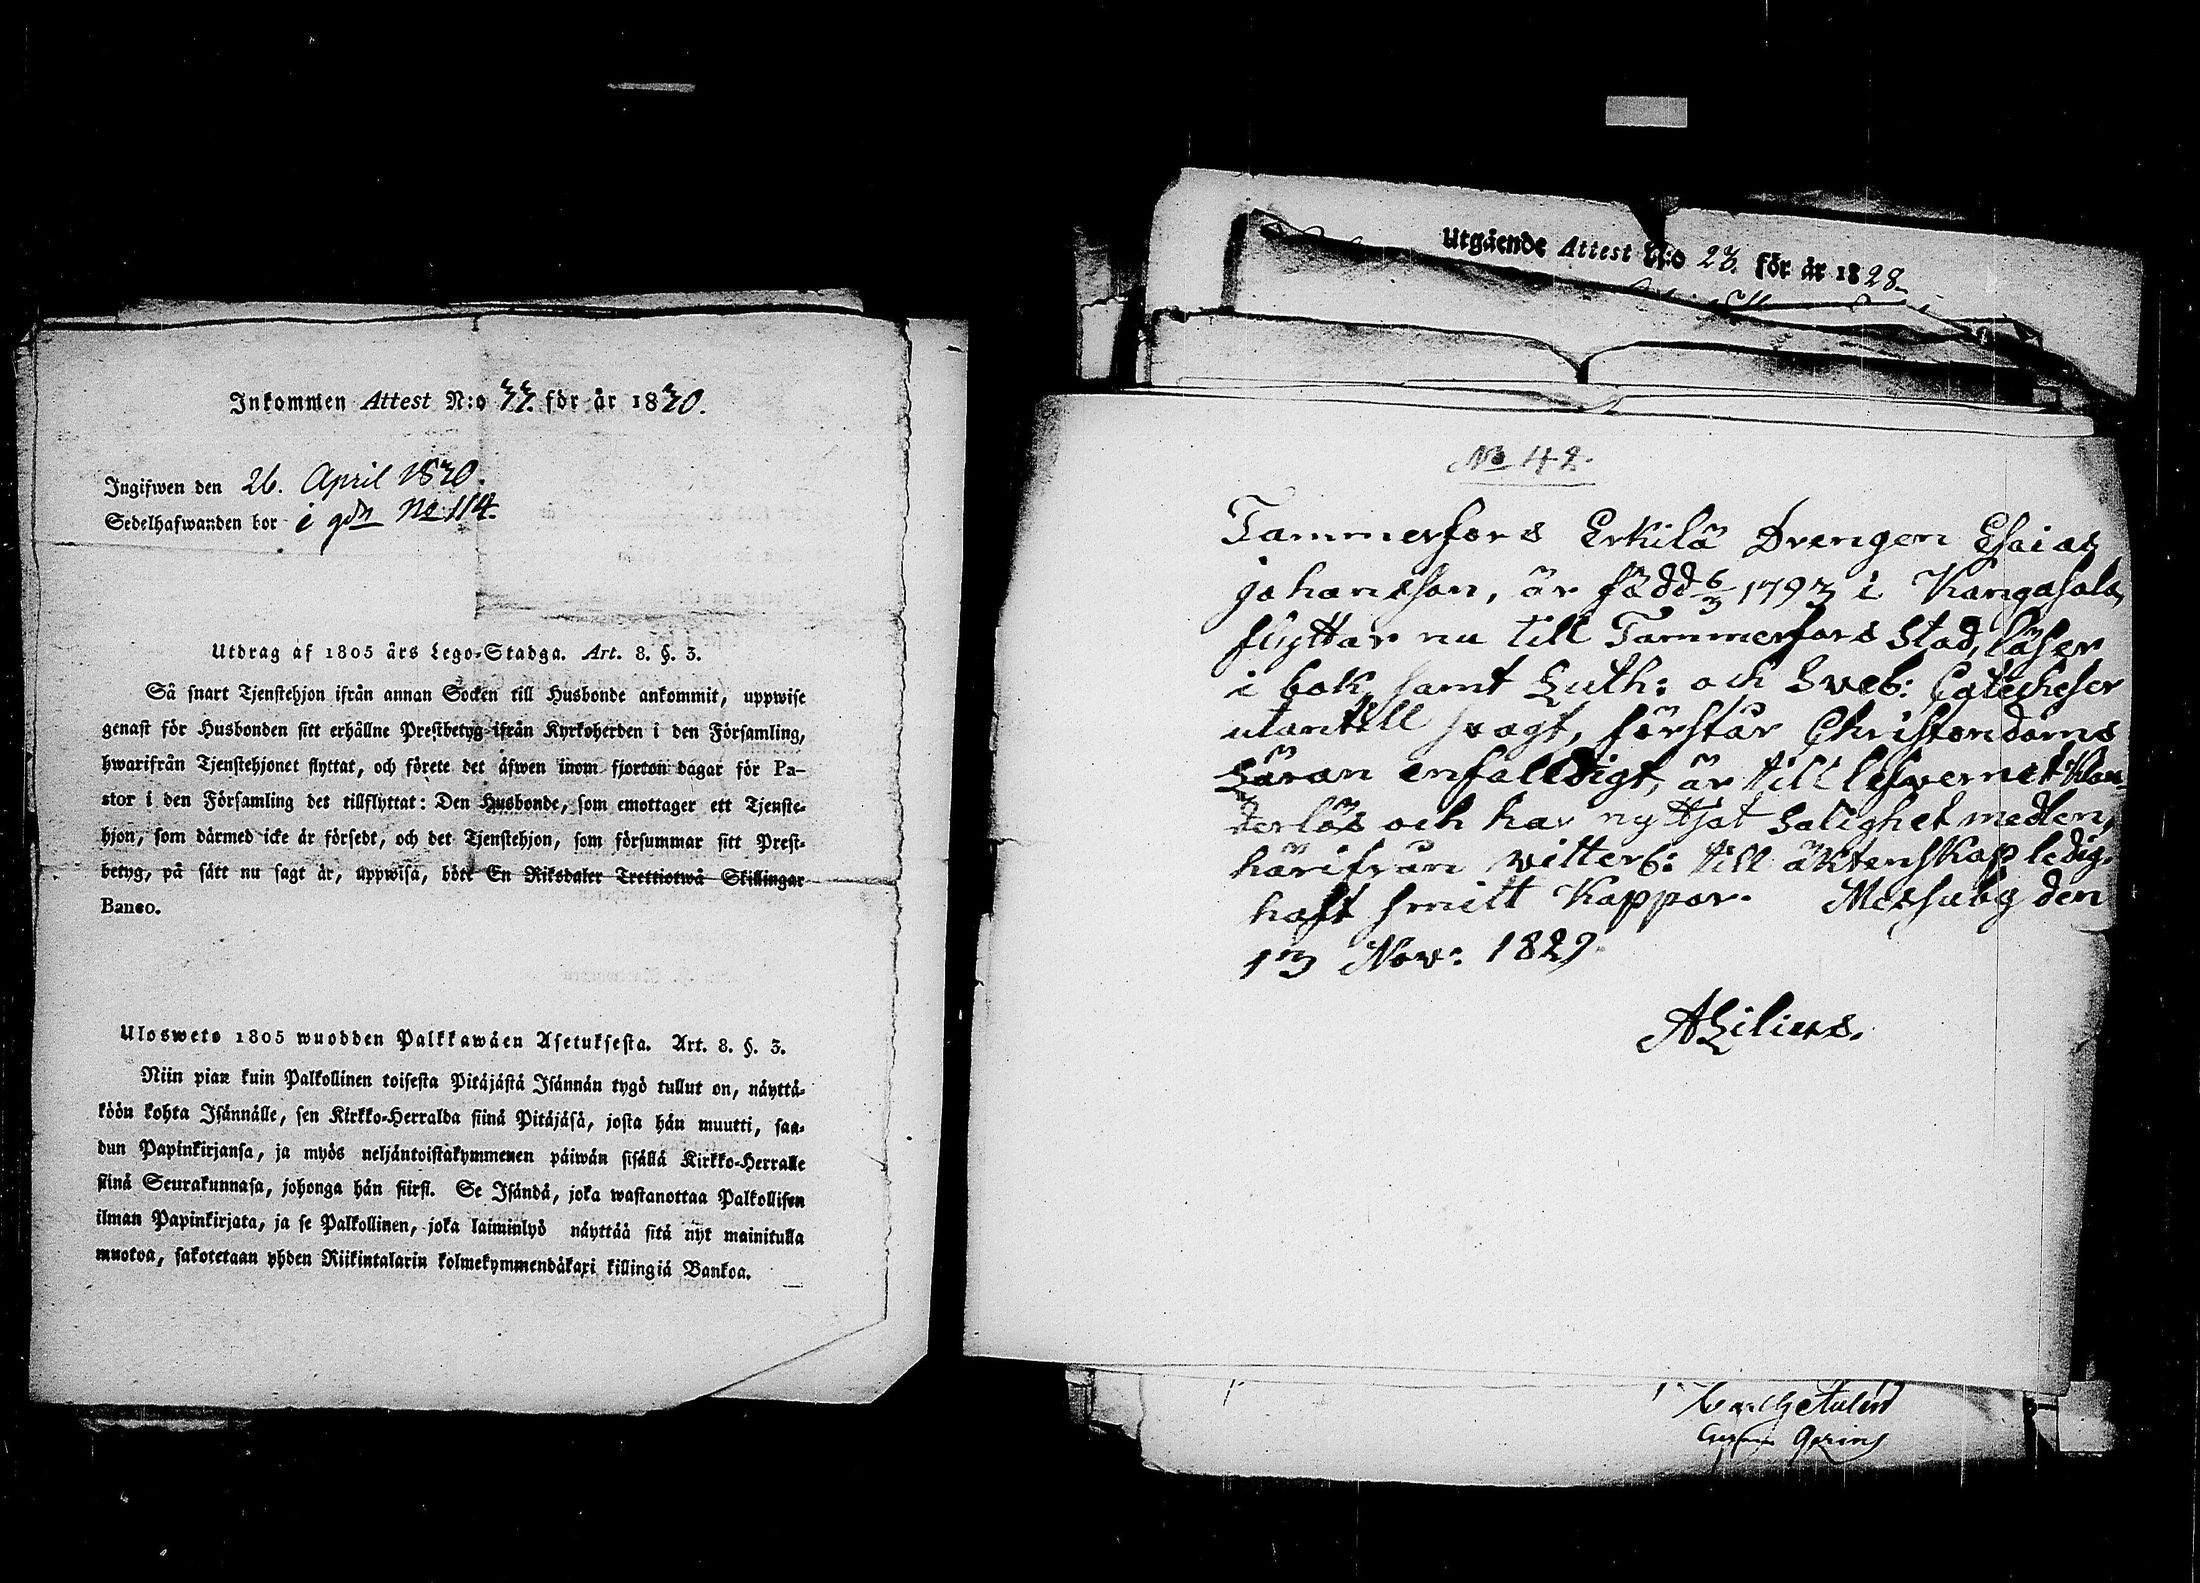 Inkommen Attest N:o 33. för år 1830.
Ingifwen den 26. April 1830.
Sedelhafwanden bor i gdn No 114.
Utdrag af 1805 års Lego-Stadga. Art. 8. §. 3.
Så snart Tjenstehjon ifrån annan Socken till Husbonde ankommit, uppwise
genast för Husbonden sitt erhållne Prestbetyg ifrån Kyrkoherden i den Församling,
hwarifrån Tjenstehjonet flyttat, och förete det äfwen inom fjorton dagar för Pa-
stor i den Församling det tillflyttat: Den Husbonde, som emottager ett Tjenste-
hjon, som därmed icke är försedt, och det Tjenstehjon, som försummar sitt Prest-
betyg, på sätt nu sagt är, uppwisa, böte En Riksdaler Trettiotwå Skillingar
Banco.
Ulosweto 1805 wuodden Palkkawäen Asetuksesta. Art. 8. §. 3.
Niin pian kuin Palkollinen toisesta Pitäjästä Isännän tygö tullut on, näyttä-
köön kohta Isännälle, sen Kirkko-Herralda siinä Pitäjäsä, josta hän muutti, saa-
dun Papinkirjansa, ja myös neljäntoistakymmenen päiwän sisällä Kirkko-Herralle
siinä Seurakunnasa, johonga hän siirsi. Se Isändä, joka wastanottaa Palkollisen
ilman Papinkirjata, ja se Palkollinen, joka laiminlyö näyttää sitä nyt mainitulla
muotoa, sakotetaan yhden Riikintalarin kolmekymmendäkaxi killingiä Bankoa.
Utgående Attest N:o 23. för år 1828.
No 42.
Tammerfors Erkilä Drengen Esaias
johansson, är född 6/3 1793 i Kangasala,
flyttar nu till Tammerfors Stad, läser
i bok, samt Luth: och Sveb: Catecheser
utantill svagt, förstår Christendoms
Läran enfalldigt, är till lefvernet klan-
derlös och har nyttjat Salighet medlen,
härifrån vitterb: till äktenskap ledig.
haft smitt Kappor. Messuby den
13 Nov: 1829.
A Lilius.